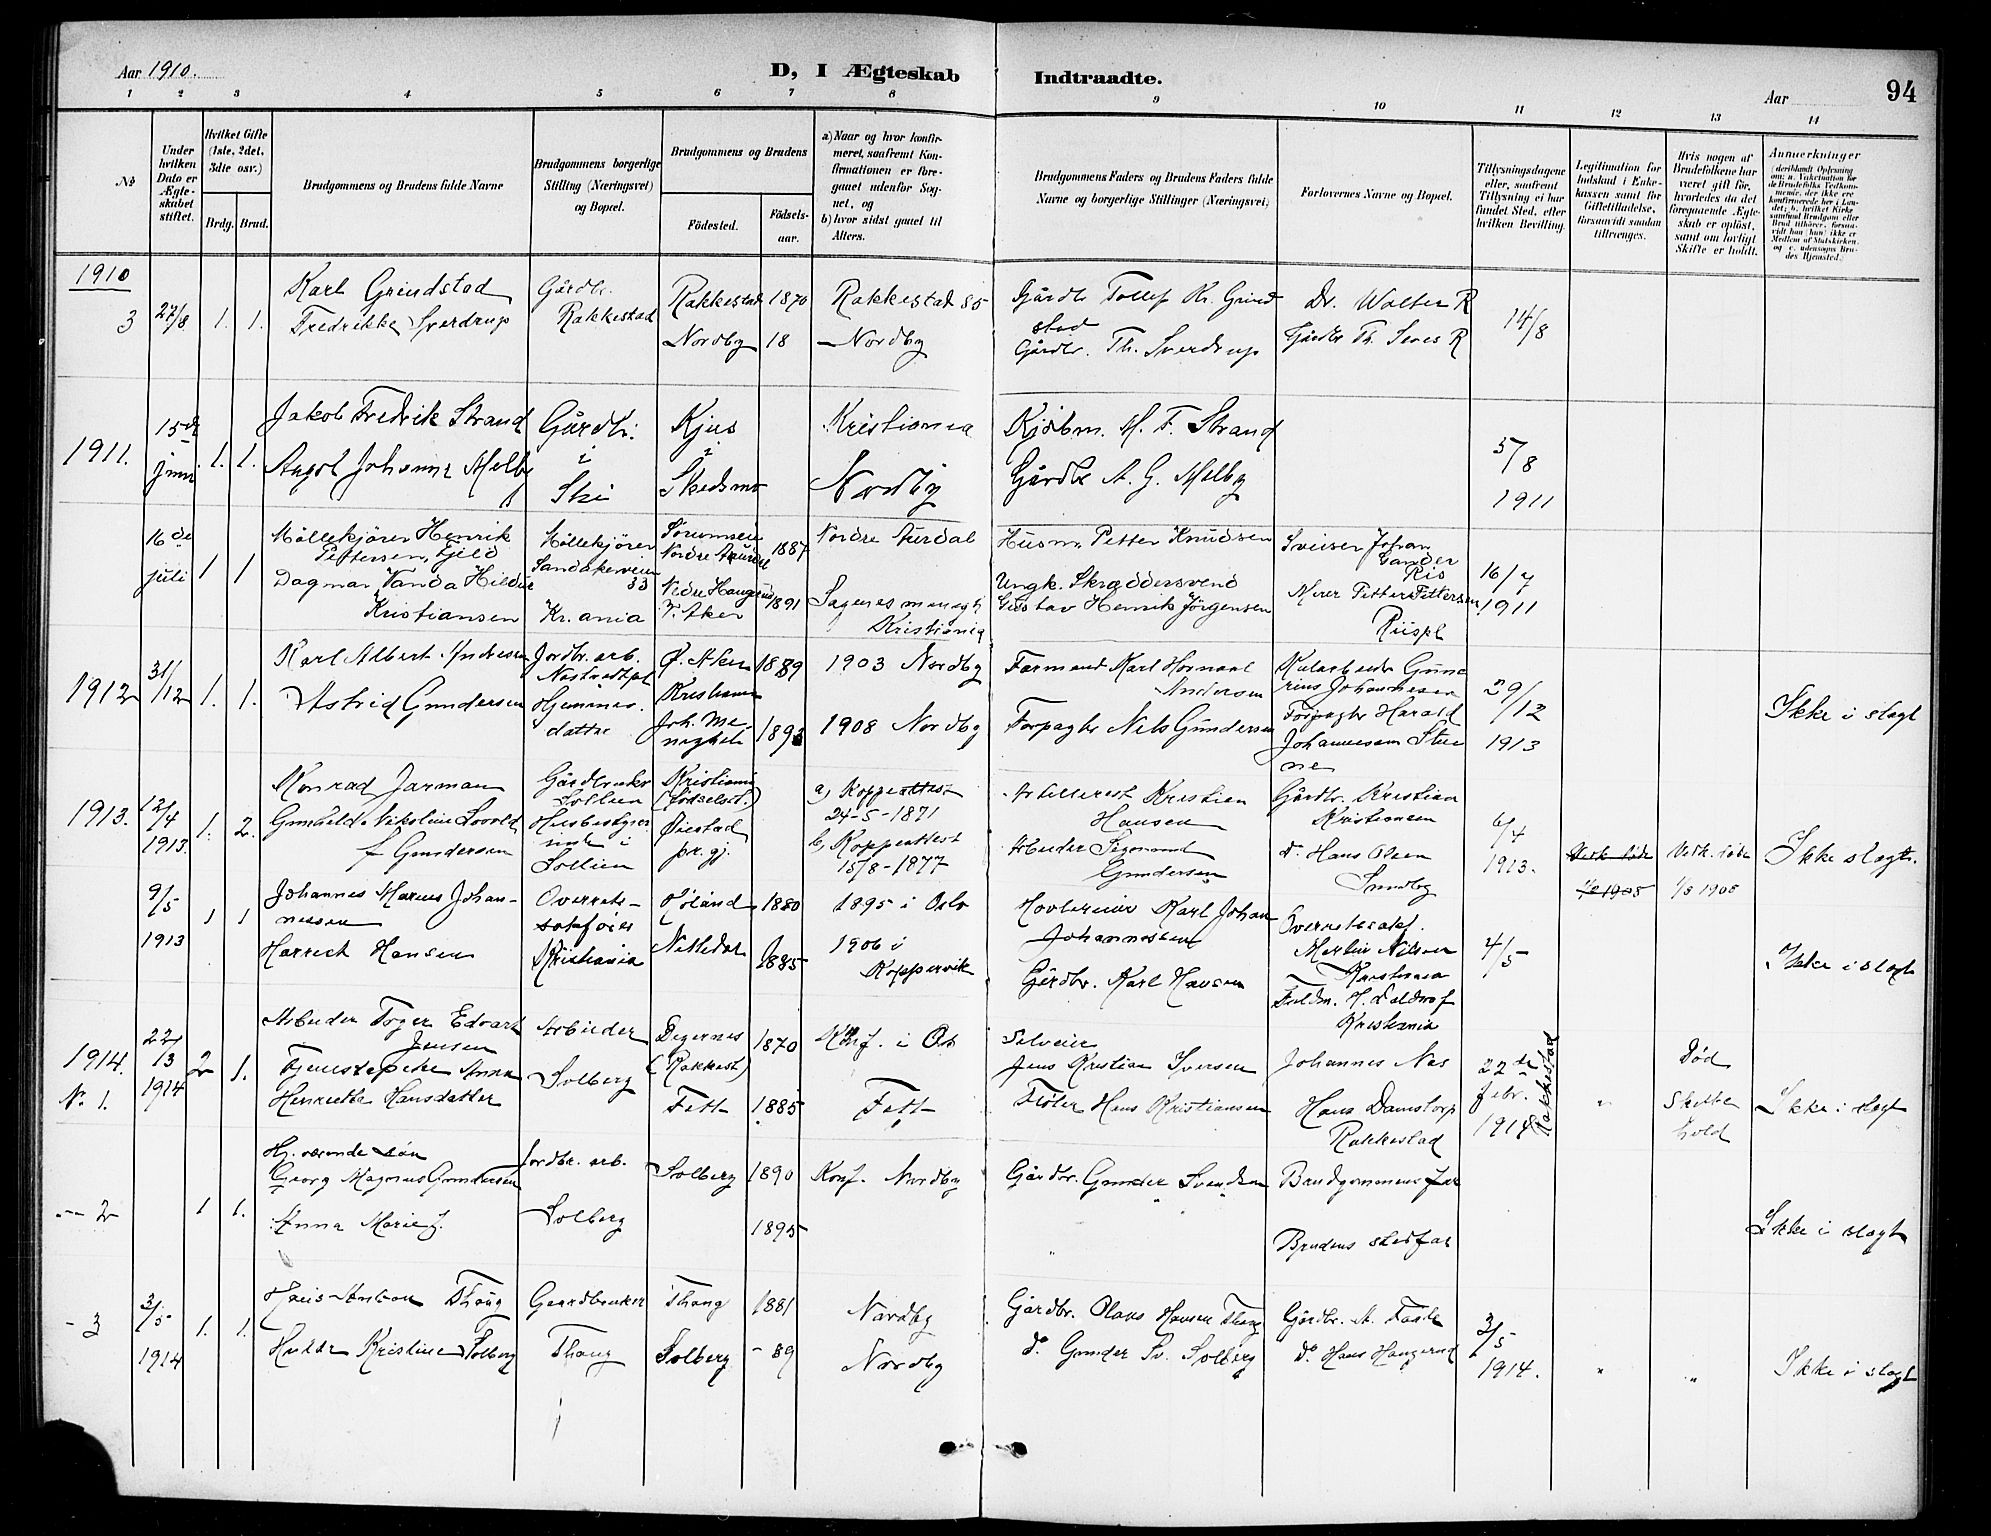 Aar 1910.
D, I Ægteskab Indtraadte.
Aar
94
1 2 3 4 5 6 7 8 9 10 11 12 13 14
No
Under hvilken Dato er Ægteskabet stiftet.
Hvilket Gifte (1ste, 2det, 3die osv.)
Brdg. Brud.
Brudgommens og Brudens fulde Navne
Brudgommens borgerlige Stilling (Næringsvei) og Bopæl.
Brudgommens og Brudens
Fødested. Fødselsaar.
a) Naar og hvor konfirmeret, saafremt Konfirmationen er foregaaet udenfor Sognet, og
b) hvor sidst gaaet til Alters.
Brudgommens Faders og Brudens Faders fulde Navne og borgerlige Stillinger (Næringsvei)
Forlovernes Navne og Bopæl.
Tillysningsdagene eller, saafremt Tillysning ei har fundet Sted, efter hvilken Bevilling.
Legitimation for Indskud i Enkekassen samt for Giftetilladelse, forsaavidt saadan tiltrænges.
Hvis nogen af Brudefolkene har været gift før, hvorledes da det foregaaende Ægteskab er opløst, samt om lovligt Skifte er holdt.
Anmærkninger
1910
3 27/8 1. 1.
Karl Grindstad
Fredrikke Sverdrup
Gårdbr. Rakkestad
Rakkestad 1870
Nordby 18
Rakkestad 85
Nordby
Gårdbr Tollef Kr. Grindstad
Gårdbr. Th. Sverdrup
Dr. Walter R
Gårdbr Th. R
14/8
1911. 15de juni. 1. 1.
Jakob Fredrik Strand
Johanne Melby
Gårdbr. i Ski
Kjus i Skedsmo
Kristiania
Nordby
Kjøbm. M. F. Strand
Gårdbr A. G. Melby
5/8 1911
16de juli 1 1
Møllekjører Henrik Pettersen,
Dagmar Vanda Hildur Kristiansen
Møllekjører Sandakerveien 33 Kr.ania
Nordre Aurdal 1887
Nedre Haugerud V. Aker 1891
Nordre Aurdal
Sagenes menigh Kristiania
Husm. Petter Knudsen
Ungk. Skræddersvend Gustav Henrik Jörgensen
Sveiser Johan Sander Ris
Murer Petter Pettersen
16/7 1911
1912 31/12 1. 1.
Karl Albert Andresen
Astrid Gundersen
Jordbr. arb.
Hjemmev. datter
Ø. Aker 1889
Kristiania Joh. Menighet 1893
1903 Nordby
1908 Nordby
Formand Karl Andersen
Forpagter Nils Gundersen
Gunerius Johannesen
Forpagter Harald Johannesen
29/12 1913
Ikke i slægt
1913. 12/4 1913. 1. 2.
Konrad Jarman
Gunhild Nikoline Loovold f Gundersen
Gårdbruker Sollien
Husbestyrerinde i Sollien
Kristiania (Fødselsst.)
Øiestad pr. gj.
a) Koppeattest 24-5-1871
b) Koppeattest 15/8-1877
Artillerist Kristian Hansen
Arbeider Sigmund Gundersen
Gårdbr. Kristian Kristiansen
do Hans Olsen Sundby
6/4 1913.
1/8 1908
Ikke slægt.
9/5 1913 1 1
Johannes Marius Johannessen
Harriet Hansen
Overretssakfører Kristiania
Løland 1880
Nittedal 1885
1895 i Oslo
1906 i Koppervik
Karl Johan Johannessen
Gårdbr. Karl Hansen
Overretssakf. Martin Nilsen Kristiania
Kristiania
4/5
Ikke i slægt
1914. No 1. 22/3 1914 2 1.
Arbeider Toger Edvart Jensen
Tjenestepike Anna Henriette Hansdatter
Arbeider Solberg
Degernes (Rakkest) 1870
Fett 1885
Konf. i Os
Fett
Selveier Jens Kristian Iversen
Fløter Hans Kristiansen
Johannes Nes
Hans Damstorp Rakkestad
22de febr. 1914 Rakkestad
"
Død
Skifte hold
Ikke i slægt
-- 2 1 1.
Hj. værende søn
Georg Magnus Gundersen
Anna Marie J.
Jordbr. arb. Solberg
Solberg 1890
1895
Konf. Nordby
Gårdbr. Gunder Svendsen
"
Brudgommens far
Brudens stedfar
Ikke i slægt
- 3 3/5 1914 1. 1.
Hans Anton Thaug
Hulda Kristine Solberg
Gaardbruker Thaug
Thaug 1881
Solberg - 89
Nordby
Nordby
Gårdbr. Olaus Hansen Thaug
do. Gunder Sv. Solberg
Gårdbr. A.
do. Hans Haugerud
3/5 1914.
" "
Ikke i slægt